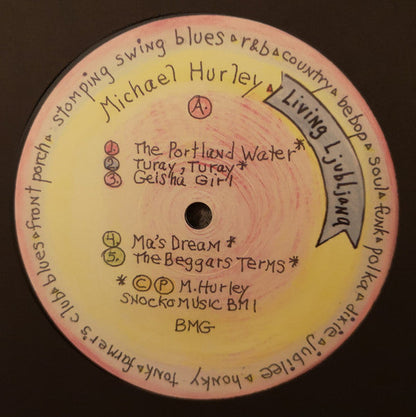 stomping swing blues ▵ r&b ▵ country ▵ bebop ▵ soul ▵ funk ▵ polka ▵ dixie ▵ jubilee ▵ honky tonk ▵ farmer's club ▵ blues ▵ front porch ▵
Michael Hurley
Living Ljubljana
A.
1. The Portland Water*
2. Turay, Turay *
3. Geisha Girl
4. Ma's Dream *
5. The Beggars Terms *
* © ℗ M. Hurley
SNOCKO MUSIC BMI
BMG